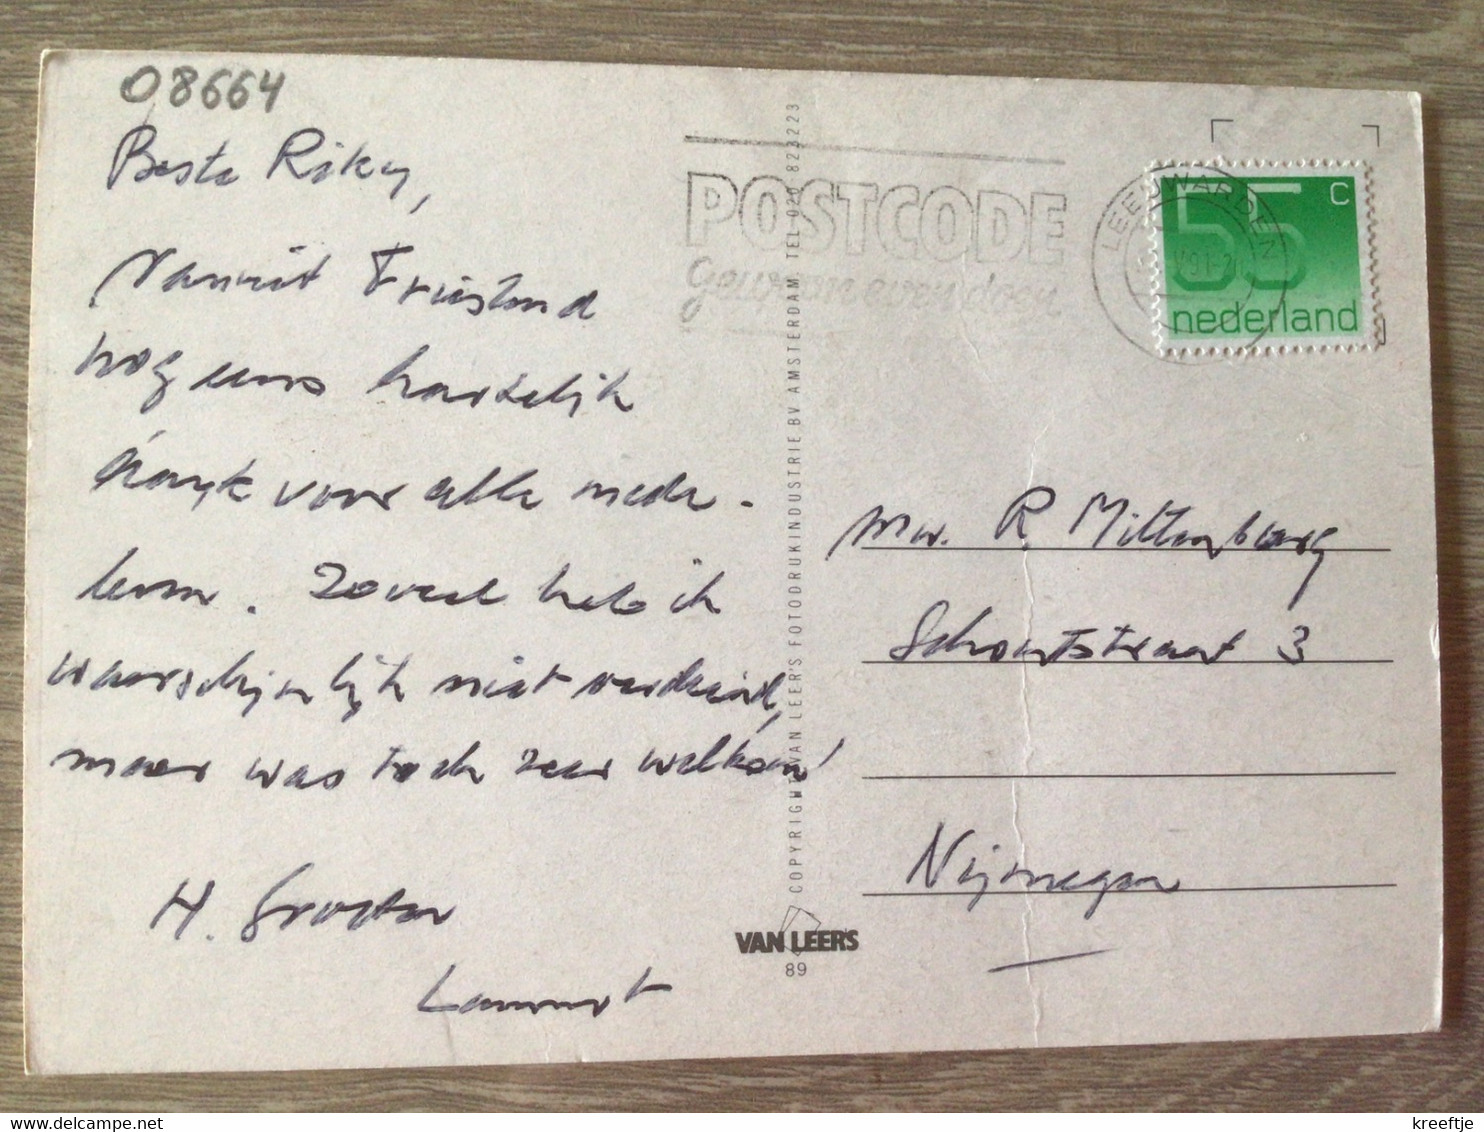 08664
Beste Riky,
Vanuit Friesland
nog eens hartelijk
dank voor alle mede-
leven. Zoveel heb ik
waarschijnlijk niet verdiend,
maar was toch zeer welkom!
H. Groeten
Lammert
POSTCODE
gewoon even doen
LEEUWARDEN
55 c
nederland
COPYRIGHT VAN LEER'S FOTODRUKINDUSTRIE BV AMSTERDAM TEL 020 823223
VAN LEER'S
89
Mw. R Miltenburg
Schoutstraat 3
Nijmegen
kreeftje